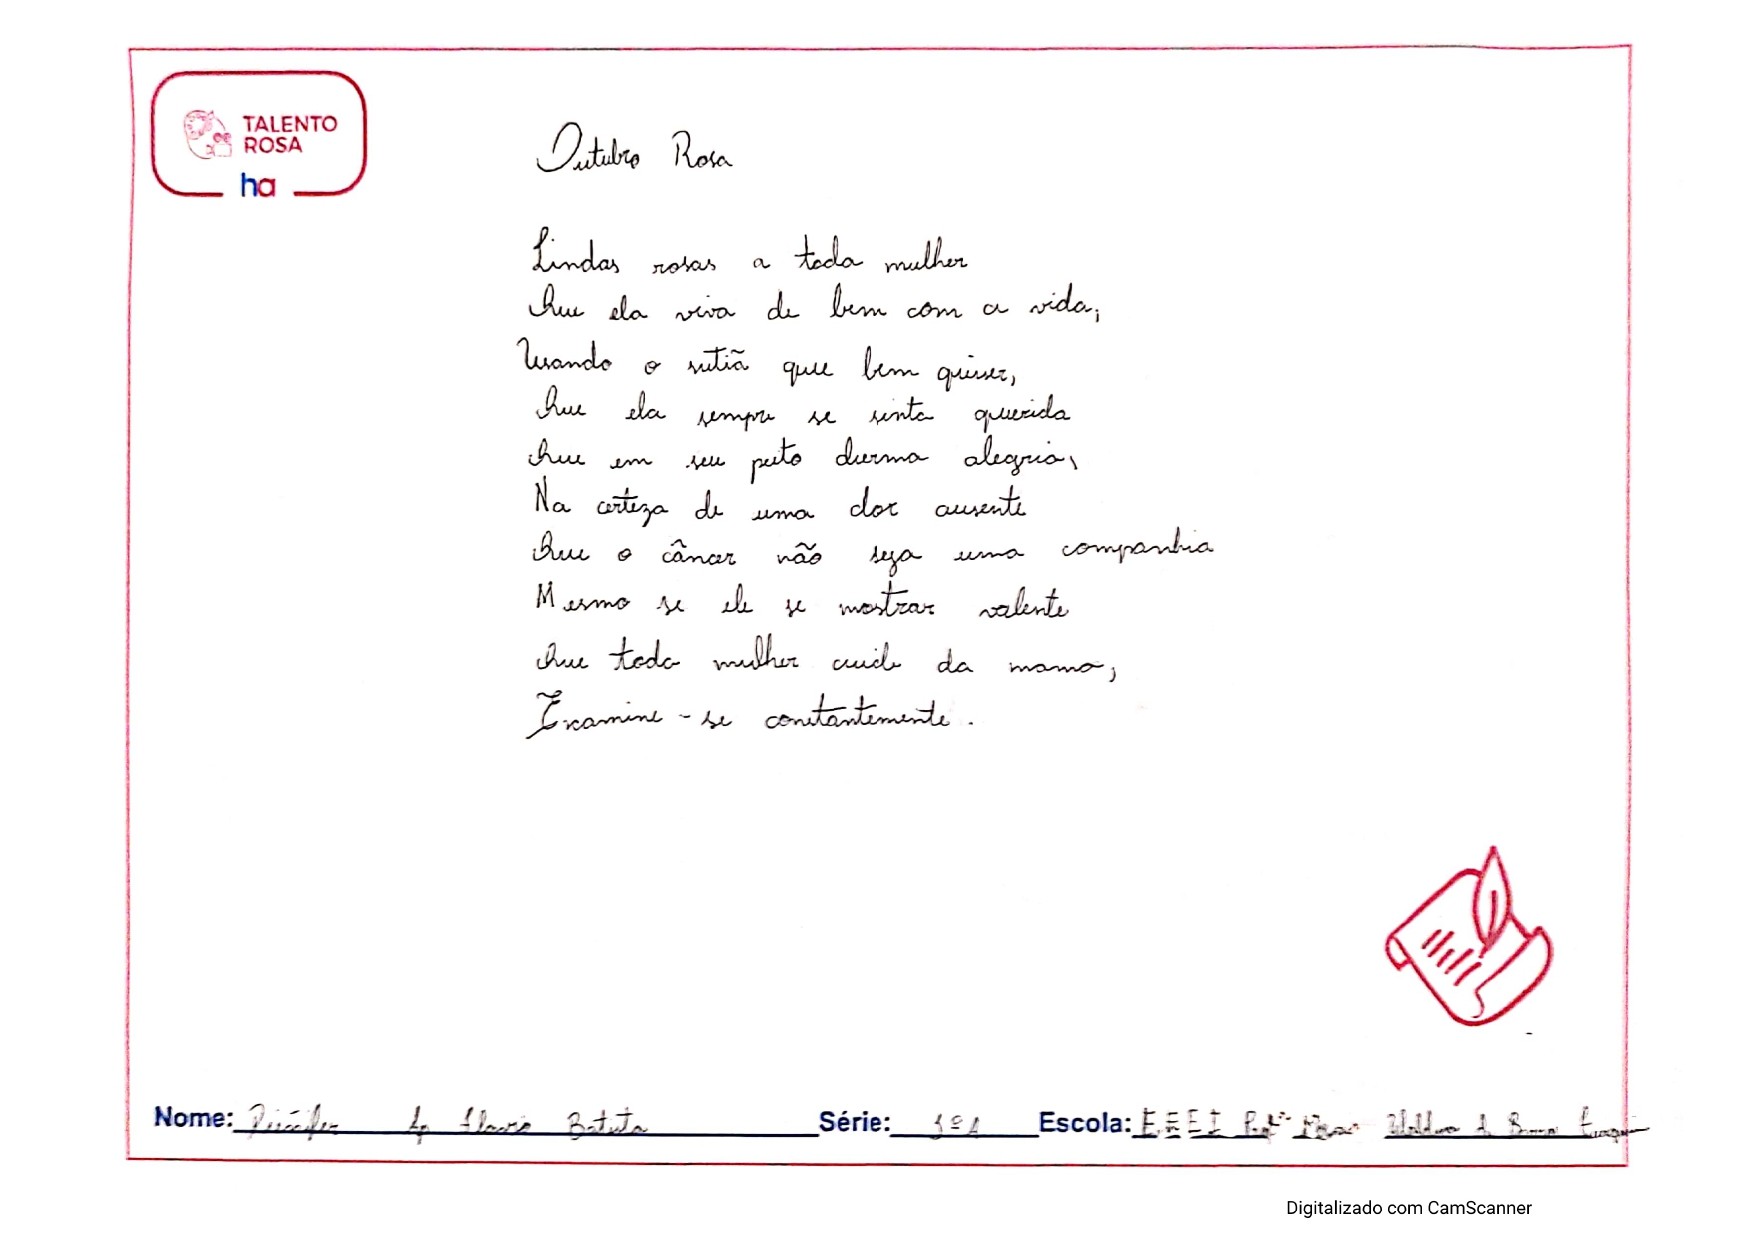 TALENTO
ROSA
ha
Outubro Rosa
Lindas rosas a toda mulher
Que ela viva de bem com a vida,
Usando o sutiã que bem quiser,
Que ela sempre se sinta querida
Que em seu peito durma alegria,
Na certeza de uma dor ausente
Que o câncer não seja uma companhia
Mesmo se ele se mostrar valente
Que toda mulher cuide da mama,
Examine-se constantemente.
Nome: Ap Flavio Batista Série: 1º1 Escola: E.E.E.I Profª
Digitalizado com CamScanner